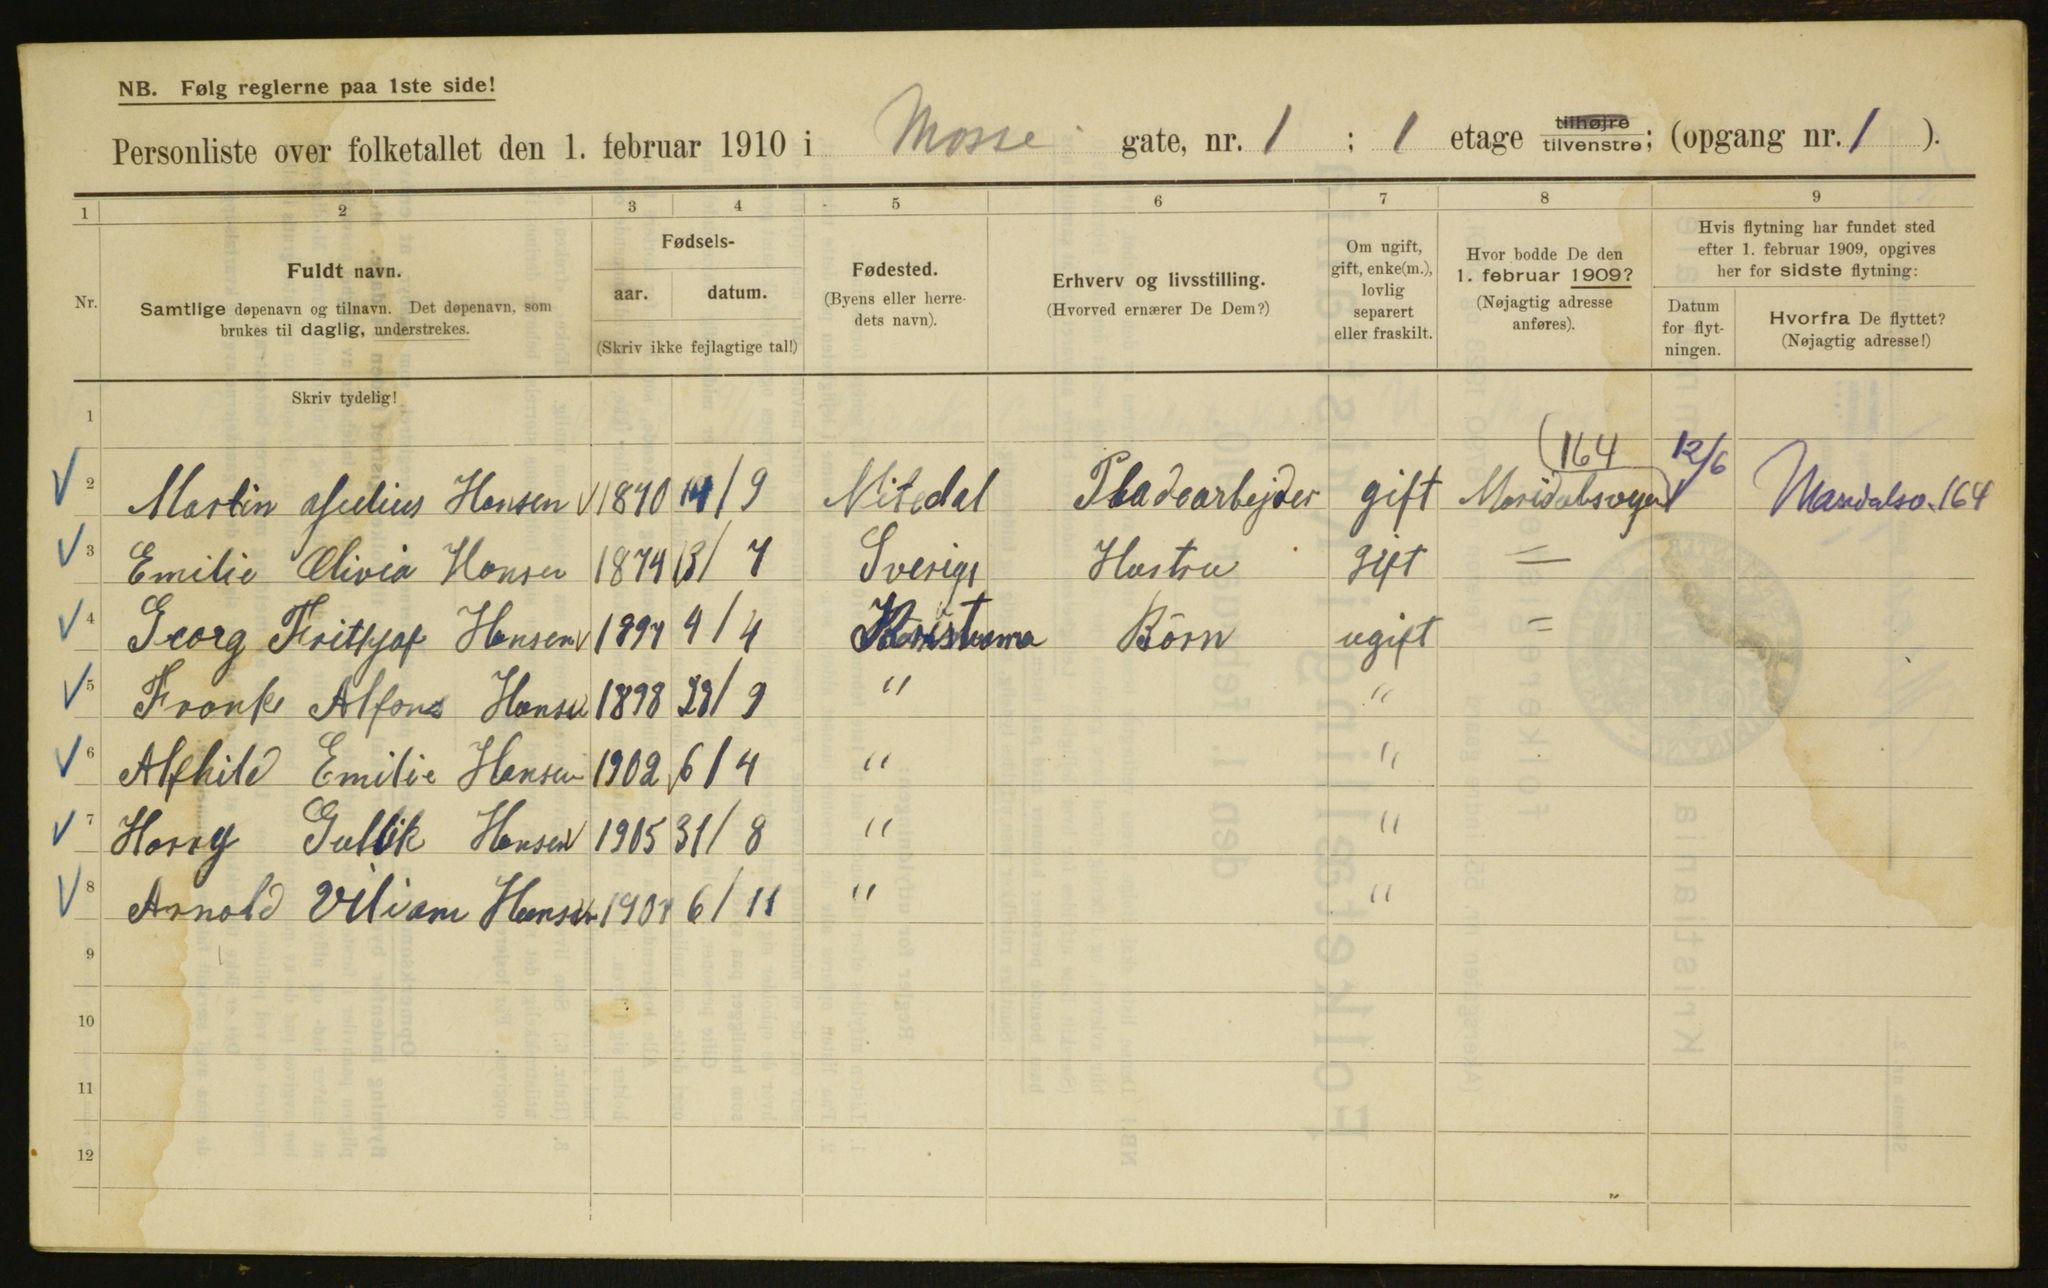 NB. Følg reglerne paa 1ste side!
Personliste over folketallet den 1. februar 1910 i Mosse gate, nr. 1 ; 1 etage tilhøjre tilvenstre; (opgang nr. 1 ).
1 2 3 4 5 6 7 8 9
Nr.
Fuldt navn.
Samtlige døpenavn og tilnavn. Det døpenavn, som
brukes til daglig, understrekes.
Fødsels-
aar. datum.
(Skriv ikke fejlagtige tal!)
Fødested.
(Byens eller herre-
dets navn).
Erhverv og livsstilling.
(Hvorved ernærer De Dem?)
Om ugift,
gift, enke(m.),
lovlig
separert
eller fraskilt.
Hvor bodde De den
1. februar 1909?
(Nøjagtig adresse
anføres).
Hvis flytning har fundet sted
efter 1. februar 1909, opgives
her for sidste flytning:
Datum
for flyt-
ningen.
Hvorfra De flyttet?
(Nøjagtig adresse!)
Skriv tydelig!
1
164
2 Martin Julius Hansen 1870 14/9 Nitedal Pladearbejder gift Maridalsvejen 12/6 Maridalsv. 164
3 Emilie Olivia Hansen 1874 13/7 Sverige Hustru gift =
4 Georg Frithjof Hansen 1897 9/4 Kristiania Börn ugift =
5 Frank Alfons Hansen 1898 29/9 " "
6 Alfhild Emilie Hansen 1902 6/4 " "
7 Harry Gullik Hansen 1905 31/8 " "
8 Arnold Viliam Hansen 1907 6/11 " "
9
10
11
12